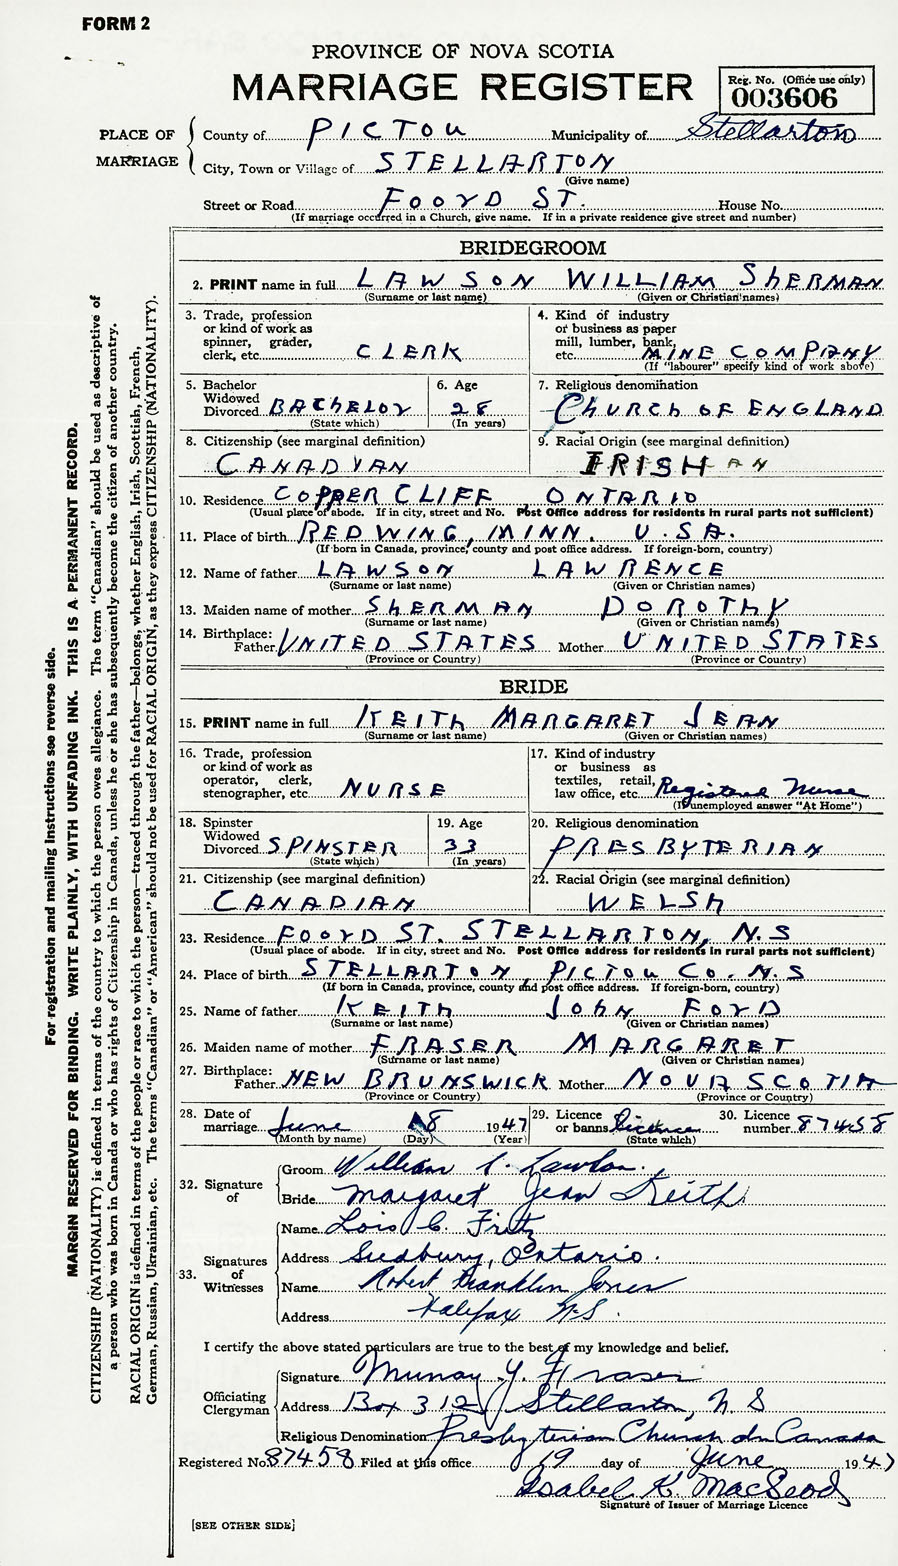 FORM 2
PROVINCE OF NOVA SCOTIA
MARRIAGE REGISTER
Reg. No. (Office use only)
003606
PLACE OF MARRIAGE
County of PICTOU Municipality of Stellarton
City, Town or Village of STELLARTON
(Give name)
Street or Road FOORD ST. House No.
(If marriage occurred in a Church, give name. If in a private residence give street and number)
BRIDEGROOM
2. PRINT name in full LAWSON WILLIAM ShERMAN
(Surname or last name) (Given or Christian names)
3. Trade, profession or kind of work as spinner, grader, clerk, etc. CLERK
4. Kind of industry or business as paper mill, lumber, bank, etc. MINE COMPANY
(If "labourer" specify kind of work above)
5. Bachelor Widowed Divorced BACHELOr
(State which)
6. Age 28
(In years)
7. Religious denomination
CHURCH OF ENGLAND
8. Citizenship (see marginal definition)
CANADIAN
9. Racial Origin (see marginal definition)
IRISH AN
10. Residence COPPER CLIFF ONTARIO
(Usual place of abode. If in city, street and No. Post Office address for residents in rural parts not sufficient)
11. Place of birth RED WING, MINN. U.SA.
(If born in Canada, province, county and post office address. If foreign-born, country)
12. Name of father LAWSON LAWRENCE
(Surname or last name) (Given or Christian names)
13. Maiden name of mother ShERMAN DOROTHY
(Surname or last name) (Given or Christian names)
14. Birthplace: Father UNITED STATES Mother UNITED STATES
(Province or Country) (Province or Country)
BRIDE
15. PRINT name in full KEITh MARGARET JEAN
(Surname or last name) (Given or Christian names)
16. Trade, profession or kind of work as operator, clerk, stenographer, etc. NURSE
17. Kind of industry or business as textiles, retail, law office, etc. Registered Nurse
(If unemployed answer "At Home")
18. Spinster Widowed Divorced SPINSTER
(State which)
19. Age 33
(In years)
20. Religious denomination
PRESBYTERIAN
21. Citizenship (see marginal definition)
CANADIAN
22. Racial Origin (see marginal definition)
WELSh
23. Residence FOORD ST. STELLARTON, N.S
(Usual place of abode. If in city, street and No. Post Office address for residents in rural parts not sufficient)
24. Place of birth STELLARTON PICTOU CO. N.S
(If born in Canada, province, county and post office address. If foreign-born, country)
25. Name of father KEITH JOHN FOYD
(Surname or last name) (Given or Christian names)
26. Maiden name of mother FRASER MARGARET
(Surname or last name) (Given or Christian names)
27. Birthplace: Father NEW BRUNSWICK Mother NOVA SCOTIA
(Province or Country) (Province or Country)
28. Date of marriage June 18 1947
(Month by name) (Day) (Year)
29. Licence or banns Licence
(State which)
30. Licence number 87458
32. Signature of
Groom William S. Lawson.
Bride Margaret Jean Keith
33. Signatures of Witnesses
Name Lois C. Fritz
Address Sudbury, Ontario.
Name Robert Franklin Jones
Address Halifax N.S.
I certify the above stated particulars are true to the best of my knowledge and belief.
Officiating Clergyman
Signature Murray Y. Fraser
Address Box 312 Stellarton, N.S
Religious Denomination Presbyterian Church in Canada
Registered No. 87458 Filed at this office 19 day of June 1947
Isabel K. MacLeod
Signature of Issuer of Marriage Licence
[SEE OTHER SIDE]
For registration and mailing instructions see reverse side.
MARGIN RESERVED FOR BINDING. WRITE PLAINLY, WITH UNFADING INK. THIS IS A PERMANENT RECORD.
CITIZENSHIP (NATIONALITY) is defined in terms of the country to which the person owes allegiance. The term "Canadian" should be used as descriptive of
a person who was born in Canada or who has rights of Citizenship in Canada, unless he or she has subsequently become the citizen of another country.
RACIAL ORIGIN is defined in terms of the people or race to which the person—traced through the father—belongs, whether English, Irish, Scottish, French,
German, Russian, Ukrainian, etc. The terms "Canadian" or "American" should not be used for RACIAL ORIGIN, as they express CITIZENSHIP (NATIONALITY).